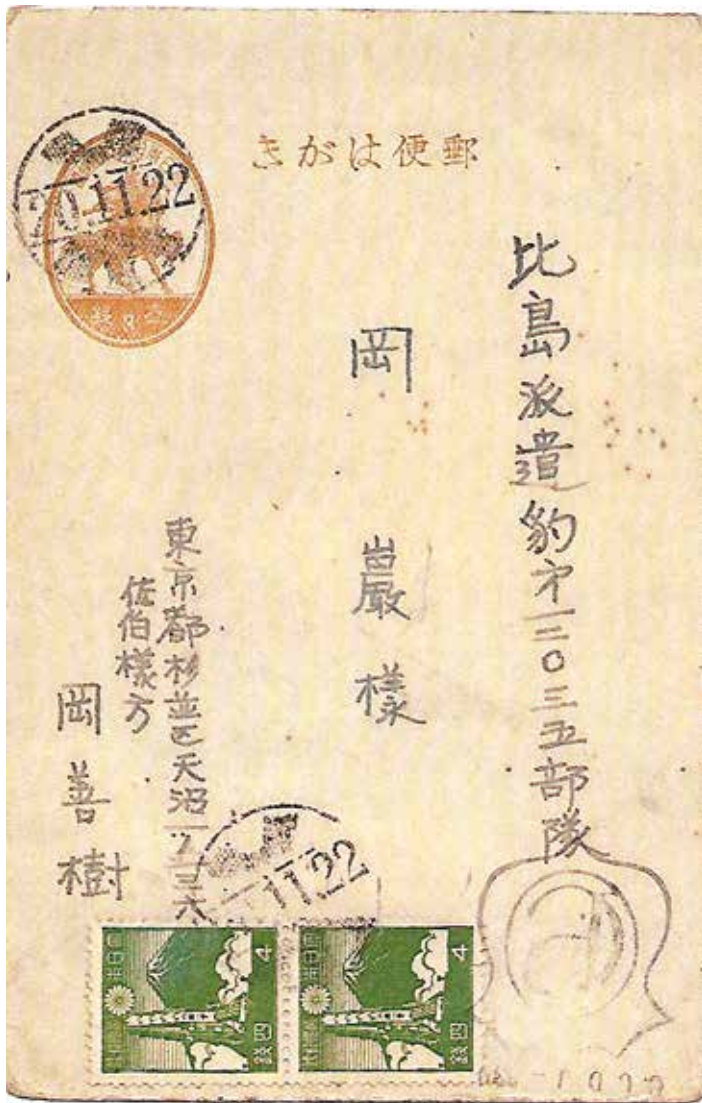 郵便はがき
20.11.22
比島派遣豹才一二〇三五部隊
岡 巖 様
東京都杉並区天沼一ノ三六
佐伯様方
岡善樹
11.22
4
四銭
4
四銭